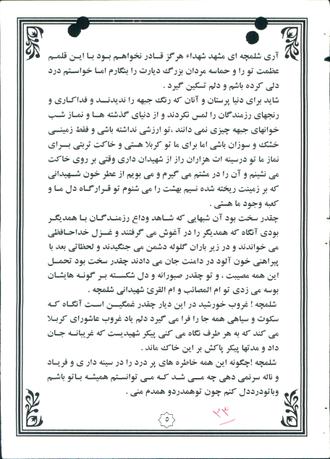 آری شلمچه ای مشهد شهداء هرگز قادر نخواهم بود با این قلمم
عظمت تو را و حماسه مردان بزرگ دیارت را بنگارم اما خواستم درد
دلی کرده باشم و دلم تسکین گیرد .
شاید برای دنیا پرستان و آنان که رنگ جبهه را ندیدند و فداکاری و
رنجهای رزمندگان را لمس نکردند و از دنیای گذشته ها و نماز شب
خوانهای جبهه چیزی نمی دانند .تو ارزشی نداشته باشی و فقط زمینی
خشک و سوزان باشی اما برای ما تو کربلا هستی و خاکت تربتی برای
نماز ما تو درسینه ات هزاران راز از شهیدان داری وقتی بر روی خاکت
می نشینم و آن را در مشتم می گیرم و می بویم از عطر خون شهیدانی
که بر زمینت ریخته شده نسیم بهشت را می شنوم تو قرارگاه دل ما و
کعبه وجود ما هستی .
چقدر سخت بود آن شبهایی که شاهد وداع رزمندگان با همدیگر
بودی آنگاه که همدیگر را در آغوش می گرفتند و غزل خداحافظی
می خواندند و در زیر باران گلوله دشمن می جنگیدند و لحظاتی بعد با
پیراهنی خون آلود در دامنت جان می دادند چقدر سخت بود تحمل
این همه مصیبت ، و تو چقدر صبورانه و دل شکسته بر گونه هایشان
بوسه می زدی تو ام المصائب و ام القری شهیدانی شلمچه .
شلمچه ! غروب خورشید در این دیار چقدر غمگین است آنگاه که
سکوت و سیاهی همه جا را فرا می گیرد دلم یاد غروب عاشورای کربلا
می کند که به هر طرف نگاه می کنی پیکر شهیدیست که غریبانه جان
داد و مدتها پیکر پاکش بر این خاک ماند .
شلمچه !چگونه این همه خاطره های پر درد را در سینه داری و فریاد
و ناله سرنمی دهی چه می شد که می توانستم همیشه باتو باشم
وباتودرددل کنم چون توهمدردو همدم منی .
۵
۳۳